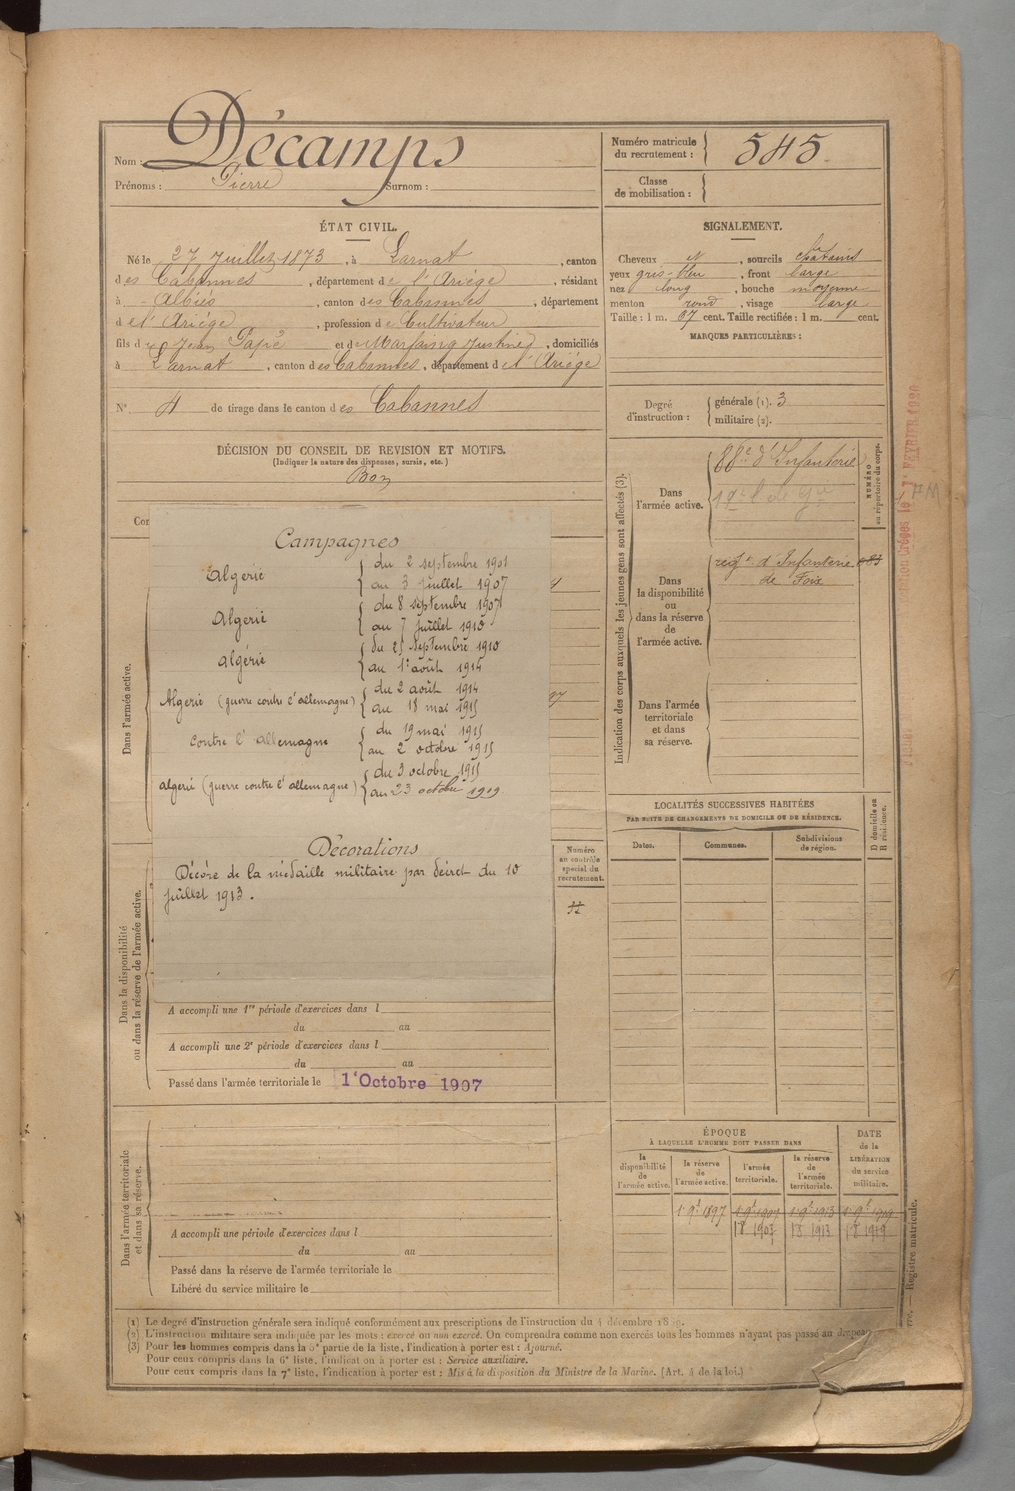 Nom : Décamps
Prénoms : Pierre Surnom :
Numéro matricule
du recrutement : 545.
Classe
de mobilisation :
ÉTAT CIVIL.
Né le 27 Juillet 1873, à Larnat, canton
des Cabannes, département de l'Ariège, résidant
à Albiès, canton des Cabannes, département
d e l'Ariège, profession de Cultivateur
fils de Jean Papé et de Marfaing Justine, domiciliés
à Larnat, canton des Cabannes, département de l'Ariège
N° 4 de tirage dans le canton des Cabannes
SIGNALEMENT.
Cheveux N, sourcils chatains
yeux gris-bleu, front large
nez long, bouche moyenne
menton rond, visage large
Taille : 1 m. 67 cent. Taille rectifiée : 1 m. cent.
MARQUES PARTICULIÈRES :
Degré
d'instruction :
générale (1). 3
militaire (2).
DÉCISION DU CONSEIL DE REVISION ET MOTIFS.
(Indiquer la nature des dispenses, sursis, etc.)
Bon
Campagnes
Algerie du 2 septembre 1901
au 3 juillet 1907
Algerie du 8 septembre 1907
au 7 juillet 1910
algérie du 25 septembre 1910
au 1er août 1914
Algerie (guerre contre l'allemagne) du 2 août 1914
au 18 mai 1915
contre l'allemagne du 19 mai 1915
au 2 octobre 1915
algerie (guerre contre l'allemagne) du 3 octobre 1915
au 23 octobre 1919
Décorations
Décoré de la médaille militaire par décret du 10
juillet 1913.
Dans l'armée active.
Dans la disponibilité
ou dans la réserve de l'armée active.
Numéro
au contrôle
spécial du
recrutement.
A accompli une 1re période d'exercices dans l
du au
A accompli une 2e période d'exercices dans l
du au
Passé dans l'armée territoriale le 1er Octobre 1907
Dans l'armée territoriale
et dans sa réserve.
A accompli une période d'exercices dans l
du au
Passé dans la réserve de l'armée territoriale le
Libéré du service militaire le
Indication des corps auxquels les jeunes gens sont affectés (3).
Dans
l'armée active.
88e d'Infanterie
NUMÉRO
au répertoire du corps.
Dans
la disponibilité
ou
dans la réserve
de
l'armée active.
regt d'Infanterie
de Foix
Dans l'armée
territoriale
et dans
sa réserve.
LOCALITÉS SUCCESSIVES HABITÉES
PAR SUITE DE CHANGEMENTS DE DOMICILE OU DE RÉSIDENCE.
Dates. Communes. Subdivisions
de région.
D domicile ou
R résidence.
ÉPOQUE
À LAQUELLE L'HOMME DOIT PASSER DANS
la
disponibilité
de
l'armée active.
la réserve
de
l'armée active.
l'armée
territoriale.
la réserve
de
l'armée
territoriale.
DATE
de la
LIBÉRATION
du service
militaire.
1 9e 1897 1 9e 1907 1 9e 1913 1 9e 1919
1 8 1907 1 8 1913 1 8 1919
Registre matricule.
(1) Le degré d'instruction générale sera indiqué conformément aux prescriptions de l'instruction du 4 décembre 1889.
(2) L'instruction militaire sera indiquée par les mots : exercé ou non exercé. On comprendra comme non exercés tous les hommes n'ayant pas passé au drapeau
(3) Pour les hommes compris dans la 5e partie de la liste, l'indication à porter est : Ajourné.
Pour ceux compris dans la 6e liste, l'indication à porter est : Service auxiliaire.
Pour ceux compris dans la 7e liste, l'indication à porter est : Mis à la disposition du Ministre de la Marine. (Art. 4 de la loi.)